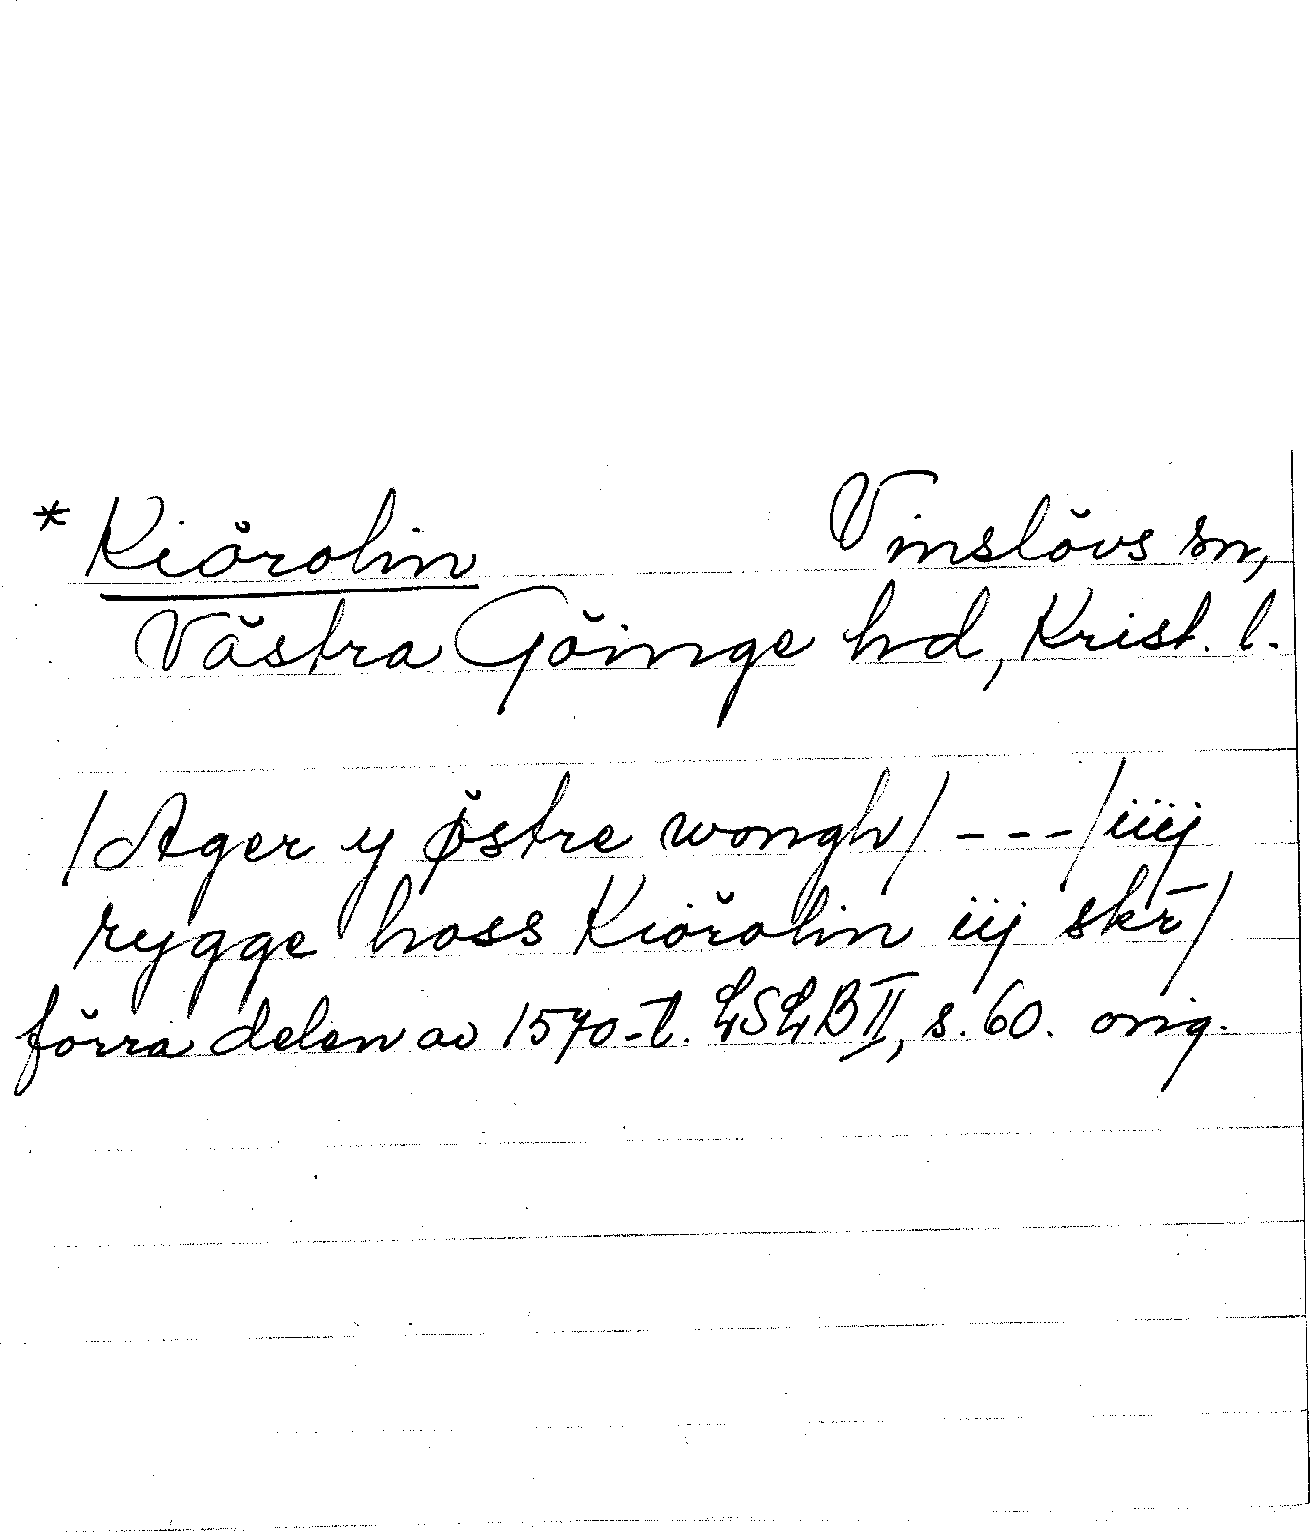 * Kiörolin Vinslövs sn,
Västra Göinge hd, Krist. l.
/Ager y østre wongh/ - - - /iiij
rygge hoss Kiörolin iij skr̄/
förra delen av 1570-t. LSLB II, s. 60. orig.